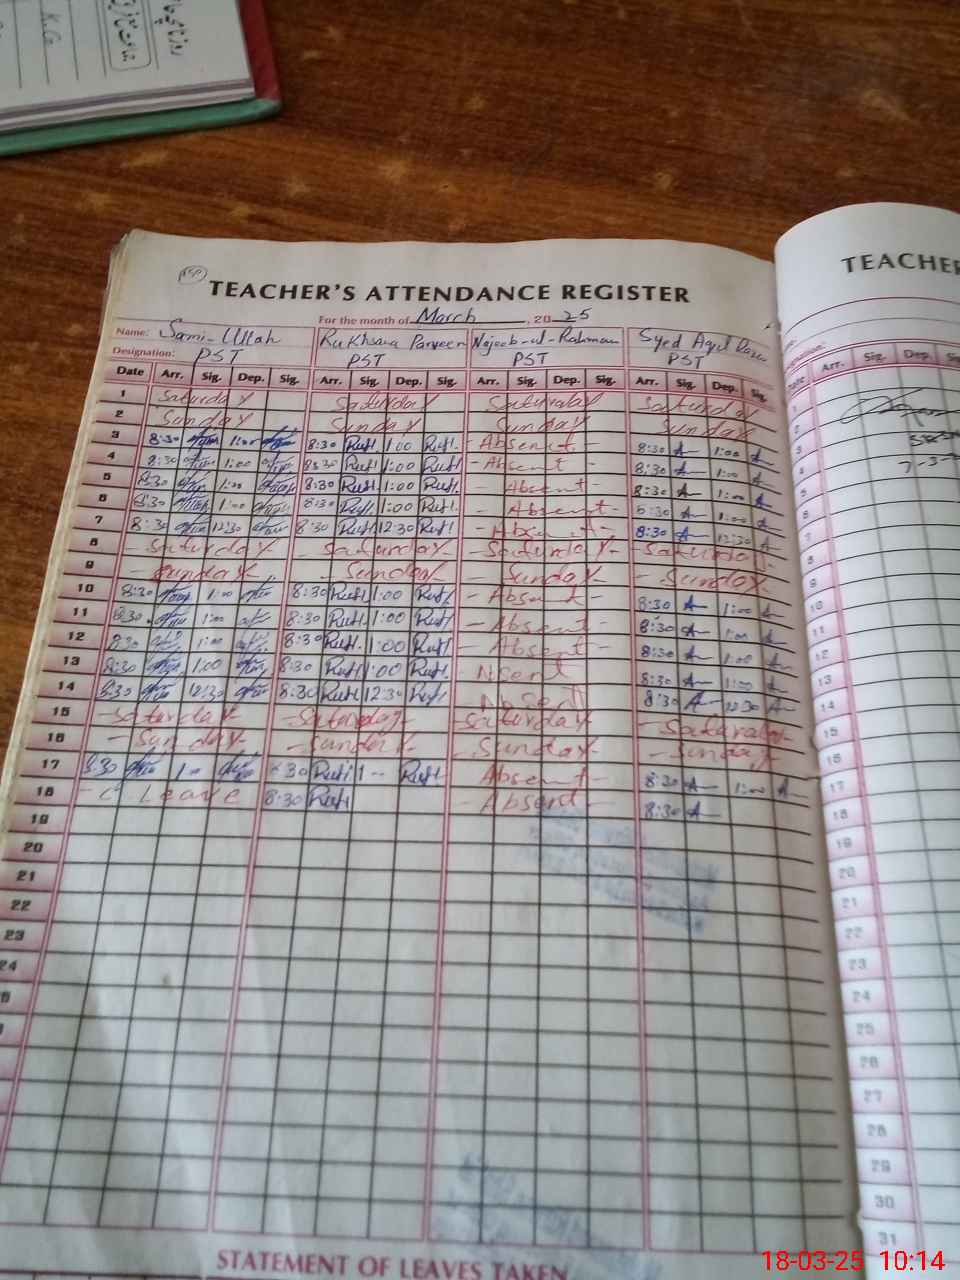 K.G
TEACHER'S ATTENDANCE REGISTER
For the month of March, 2025
Name: Sami-Ullah Rukhsana Parveen Najeeb-ul-Rahman Syed Aqil
Designation: PST PST PST PST
Date Arr. Sig. Dep. Sig. Arr. Sig. Dep. Sig. Arr. Sig. Dep. Sig. Arr. Sig. Dep. Sig.
1 Saturday Saturday Saturday Saturday
2 Sunday Sunday Sunday Sunday
3 8:30 1:00 8:30 Rukh. 1:00 Rukh. - Absent - 8:30 A 1:00 A
4 8:30 1:00 8:30 Rukh. 1:00 Rukh. - Absent - 8:30 A 1:00 A
5 8:30 1:00 8:30 Rukh. 1:00 Rukh. - Absent - 8:30 A 1:00 A
6 8:30 1:00 8:30 Rukh. 1:00 Rukh. - Absent - 8:30 A 1:00 A
7 8:30 12:30 8:30 Rukh. 12:30 Rukh. - Absent - 8:30 A 12:30 A
8 - Saturday - Saturday - Saturday - - Saturday -
9 - Sunday - - Sunday - Sunday - - Sunday
10 8:30 1:00 8:30 Rukh. 1:00 Rukh. - Absent - 8:30 A 1:00 A
11 8:30 1:00 8:30 Rukh. 1:00 Rukh. - Absent - 8:30 A 1:00 A
12 8:30 1:00 8:30 Rukh. 1:00 Rukh. - Absent - 8:30 A 1:00 A
13 8:30 1:00 8:30 Rukh. 1:00 Rukh. 8:30 A 1:00 A
14 8:30 12:30 8:30 Rukh. 12:30 Rukh. 8:30 A 12:30 A
15 - Saturday - - Saturday - - Saturday - Saturday -
16 - Sunday - - Sunday - - Sunday - - Sunday -
17 8:30 1:00 8:30 Rukh. 1-- Rukh. - Absent - 8:30 A 1:00 A
18 - C. Leave 8:30 Rukh. - Absent - 8:30 A
19
20
21
22
23
24
STATEMENT OF LEAVES TAKEN
TEACHER
Date Arr. Sig. Dep.
1
2
3
4
5
6
7
8
9
10
11
12
13
14
15
16
17
18
19
20
21
22
23
24
25
26
27
28
29
30
31
18-03-25 10:14